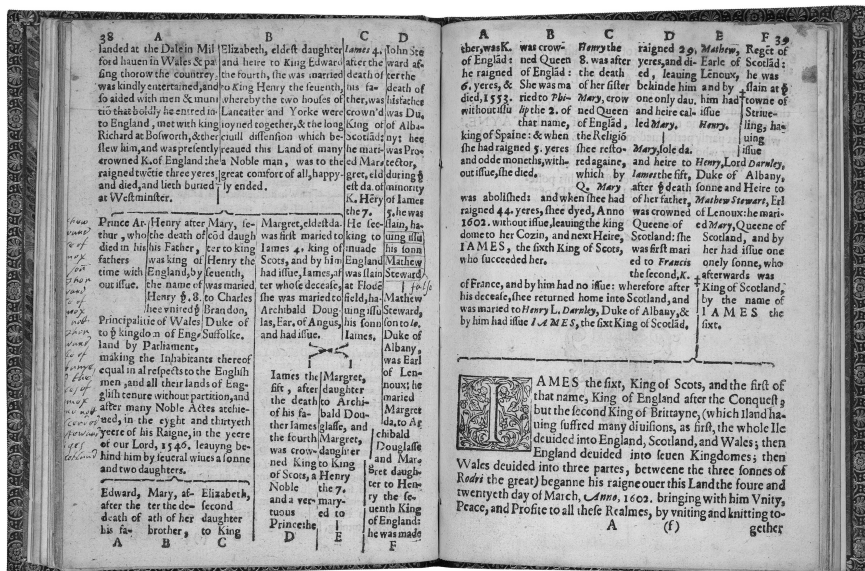 38 A B C D
landed at the Dale in Mil
ford hauen in Wales & pa
ſing thorow the countrey,
was kindly entertained, and
ſo aided with men & muni
tiõ that boldly he entred in
to England, met with king
Richard at Boſworth, & ther
ſlew him, and was preſently
crowned K. of England: he
raigned twẽtie three yeres,
and died, and lieth buried
at Weſtminſter.
Elizabeth, eldeſt daughter
and heire to King Edward
the fourth, ſhe was married
to King Henry the ſeuenth,
whereby the two houſes of
Lancaſter and Yorke were
ioyned together, & the long
ciuill diſſenſion which be-
reaued this Land of many
a Noble man, was to the
great comfort of all, happy-
ly ended.
Iames 4.
after the
death of
his fa-
ther, was
crown'd
King of
Scotlãd:
he mari-
ed Mar-
gret, eld
eſt da. of
K. Hẽry
the 7.
He ſee-
king to
inuade
England
was ſlain
at Flodẽ
field, ha-
uing iſſu
his ſonn
Iaines,
Iohn Ste
ward af-
ter the
death of
his father
was Du.
of Alba-
ny: hee
was Pro
tector,
during ye
minority
of Iames
5. he was
ſlain, ha-
uing iſſu
his ſonn
Mathew
Steward
falſe
Mathew
Steward,
ſon to Io.
Duke of
Albany,
was Earl
of Len-
noux; he
maried
Margret
da. to Ar
chibald
Douglaſſe
and Mar
gret daugh-
ter to Hen-
ry the ſe-
uenth King
of England:
he was made
Prince Ar-
thur, who
died in his
fathers
time with
out iſſue.
Henry after
the death of
his Father,
was king of
England, by
the name of
Henry ye. 8.
he vnited ye
Principalitie of Wales
to ye kingdon of Eng-
land by Parliament,
making the Inhabitants thereof
equal in al reſpects to the Engliſh
men, and all their lands of Eng-
gliſh tenure without partition, and
after many Noble Actes atchie-
ued, in the eyght and thirtyeth
yeere of his Raigne, in the yeere
of our Lord, 1546. leauyng be-
hind him by ſeueral wiues a ſonne
and two daughters.
Mary, ſe-
cõd daugh
ter to king
Henry the
ſeuenth,
was maried
to Charles
Brandon,
Duke of
Suffolke.
Margret, eldeſt da.
was firſt maried to
Iames 4. king of
Scots, and by him
had iſſue, Iames, af
ter whoſe deceaſe,
ſhe was maried to
Archibald Doug-
las, Ear. of Angus,
and had iſſue.
Iames the
fift, after
the death
of his fa-
ther Iames
the fourth
was crow-
ned King
of Scots, a
Noble
and a ver-
tuous
Prince the
Margret,
daughter
to Archi-
bald Dou-
glaſſe, and
Margret,
daughter
to King
Henry
the 7.
mary-
ed to
Edward,
after the
death of
his fa-
Mary, af-
ter the de-
ath of her
brother,
Elizabeth,
ſecond
daughter
to King
A B C D E F
A B C D E F 39
ther, was K.
of Englãd:
he raigned
6. yeres, &
died, 1553.
without iſſu
was crow-
ned Queen
of Englãd:
She was ma
ried to Phi-
lip the 2. of
that name,
king of Spaine: & when
ſhe had raigned 5. yeres
and odde moneths, with-
out iſſue, ſhe died.
Henry the
8. was after
the death
of her ſiſter
Mary, crow
ned Queen
of Englãd,
the Religiõ
ſhee reſto-
red againe,
which by
Q. Mary
was aboliſhed: and when ſhee had
raigned 44. yeres, ſhe dyed, Anno
1602. without iſſue, leauing the king
dome to her Cozin, and next Heire,
IAMES, the ſixth King of Scots,
who ſucceeded her.
raigned 29.
yeres, and di-
ed, leauing
behinde him
one only dau.
and heire cal-
led Mary.
Mary, ſole da.
and heire to
Iames the fift,
after ye death
of her father,
was crowned
Queene of
Scotland: ſhe
was firſt mari
ed to Francis
the ſecond, K.
of France, and by him had no iſſue: wherefore after
his deceaſe, ſhee returned home into Scotland, and
was maried to Henry L. Darnley, Duke of Albany, &
by him had iſſue IAMES, the ſixt King of Scotlãd.
Mathew,
Earle of
Lẽnoux,
and by
him had
iſſue
Henry.
Regẽt of
Scotlãd:
he was
ſlain at ye
towne of
Striue-
ling, ha-
uing
iſſue
Henry, Lord Darnley,
Duke of Albany,
ſonne and Heire to
Mathew Stewart, Erl
of Lenoux: he mari-
ed Mary, Queene of
Scotland, and by
her had iſſue one
onely ſonne, who
afterwards was
King of Scotland,
by the name of
IAMES the
ſixt.
IAMES the ſixt, King of Scots, and the firſt of
that name, King of England after the Conqueſt,
but the ſecond King of Brittayne, (which Iland ha-
uing ſuffred many diuiſions, as firſt, the whole Ile
deuided into England, Scotland, and Wales; then
England deuided into ſeuen Kingdomes; then
Wales deuided into three partes, betweene the three ſonnes of
Rodri the great) beganne his raigne ouer this Land the foure and
twentyeth day of March, Anno, 1602. bringing with him Vnity,
Peace, and Profite to all theſe Realmes, by vniting and knitting to-
A (f) gether